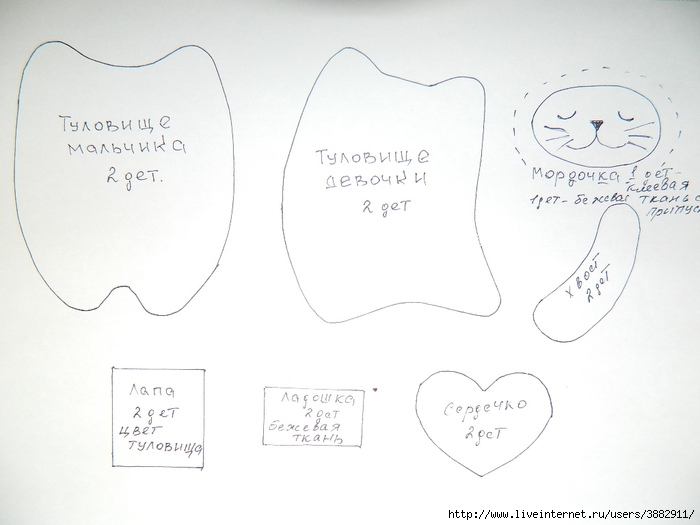 Туловище
мальчика
2 дет.
Туловище
девочки
2 дет
Мордочка 1 дет-
клеевая
1дет-бежевая ткань с
припус
хвост
2 дет
Лапа
2 дет
цвет
туловища
Ладошка
2 дет
бежевая
ткань
Сердечко
2 дет
http://www.liveinternet.ru/users/3882911/